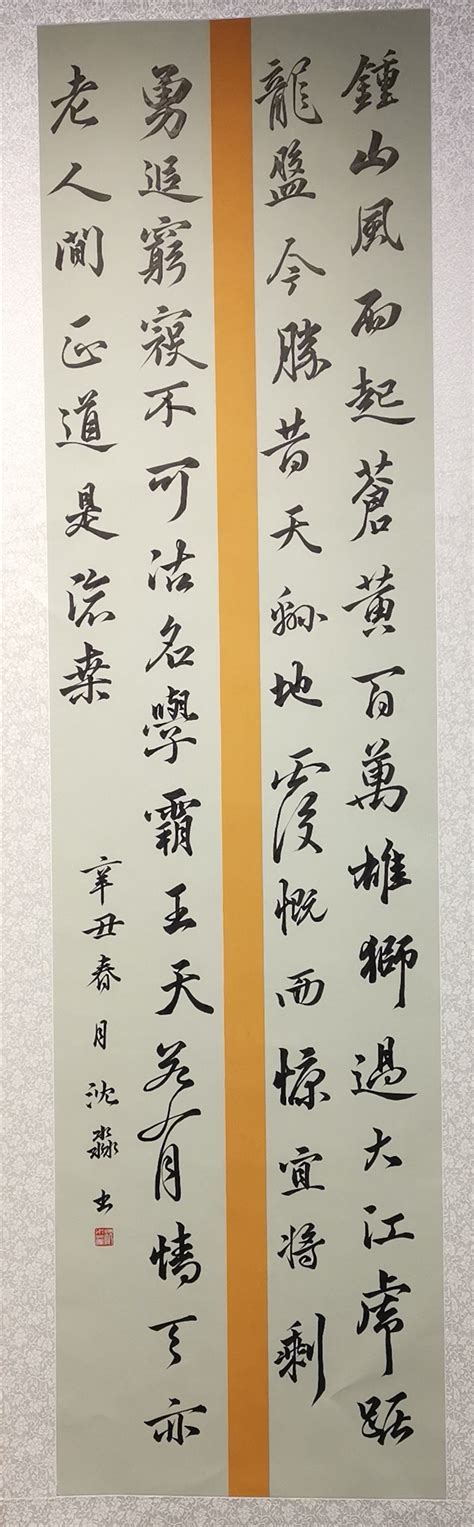 鍾山風雨起蒼黃百萬雄獅過大江虎踞
龍盤今勝昔天翻地覆慨而慷宜將剩
勇追窮寇不可沽名學霸王天若有情天亦
老人間正道是滄桑
辛丑春月沈淼书